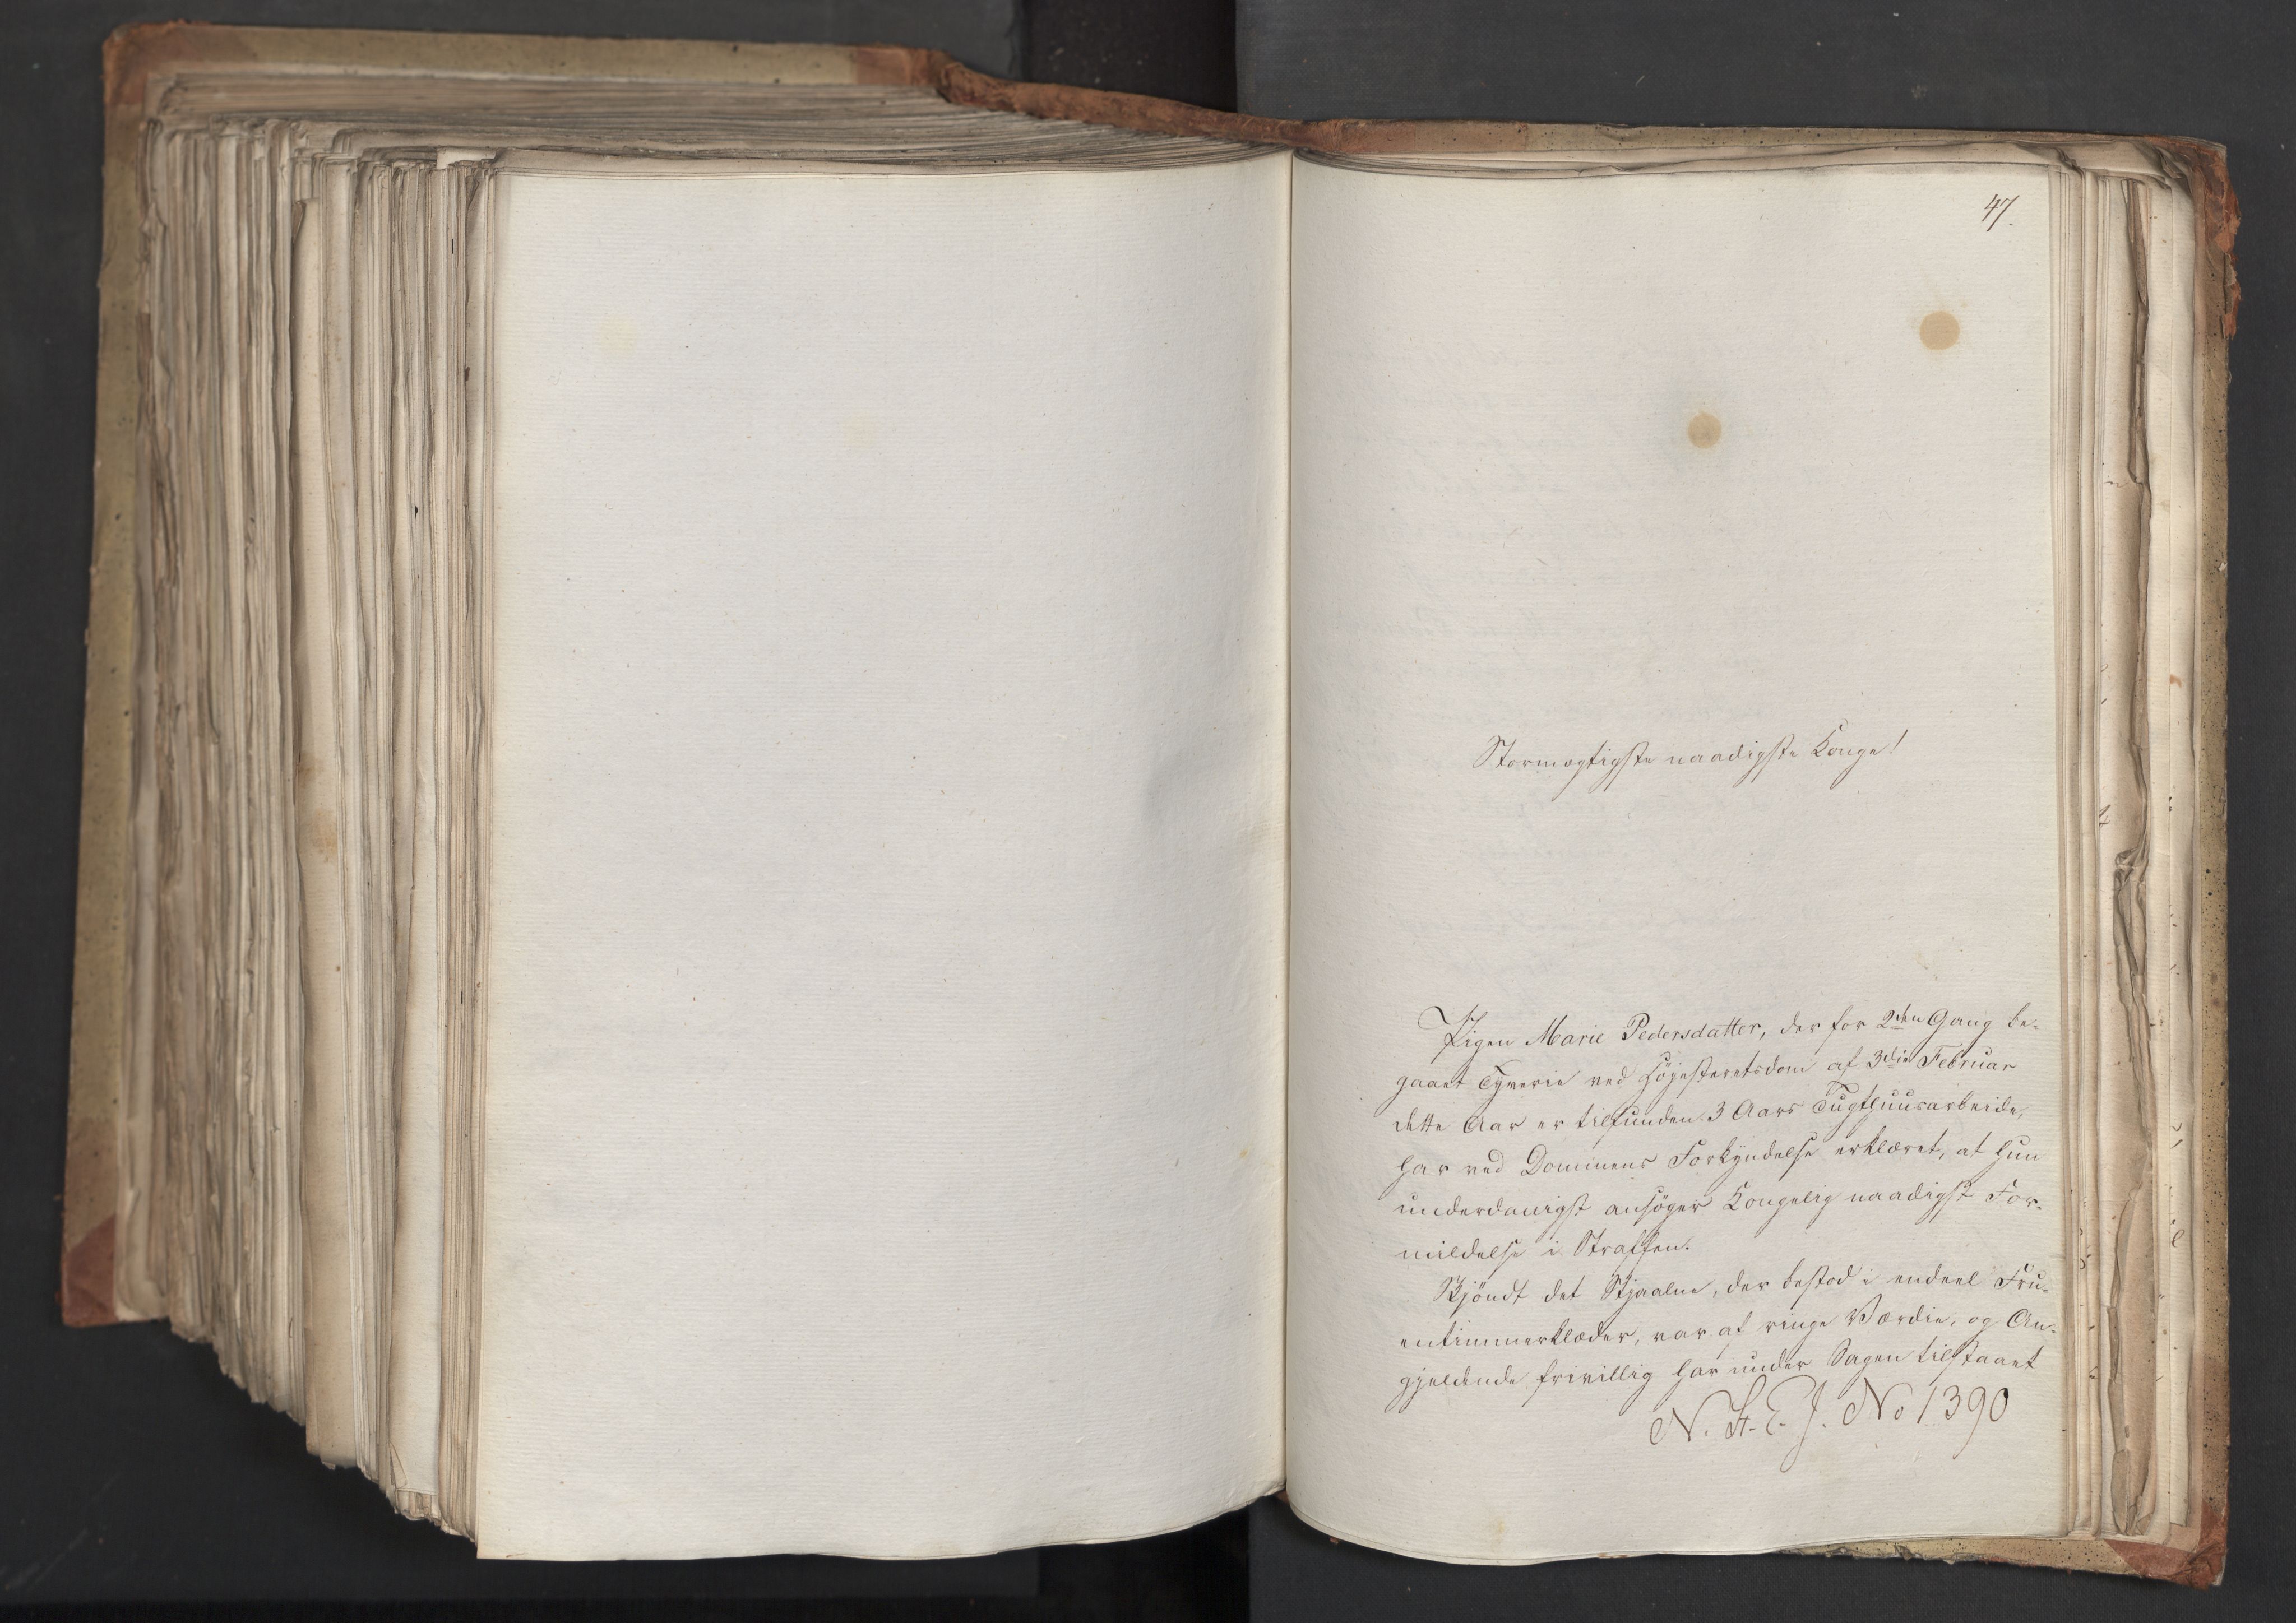 47.
Stormægtigste naadigste Konge!
Pigen Marie Pedersdatter, der for 2den Gang be-
gaaet Tyverie ved Höjesteretsdom af 3die Februar
dette Aar er tilfunden 3 Aars Tugthuusarbeide,
har ved Dommens Forkyndelse erklæret, at hun
underdanigst ansöger Kongelig naadigst For-
mildelse i Straffen.
Skjöndt det Stjaalne, der bestod i endeel Fru-
entimmerklæder, var af ringe Værdie, og An-
gjeldende frivillig har under Sagen tilstaaet
N. St. C. J. No 1390